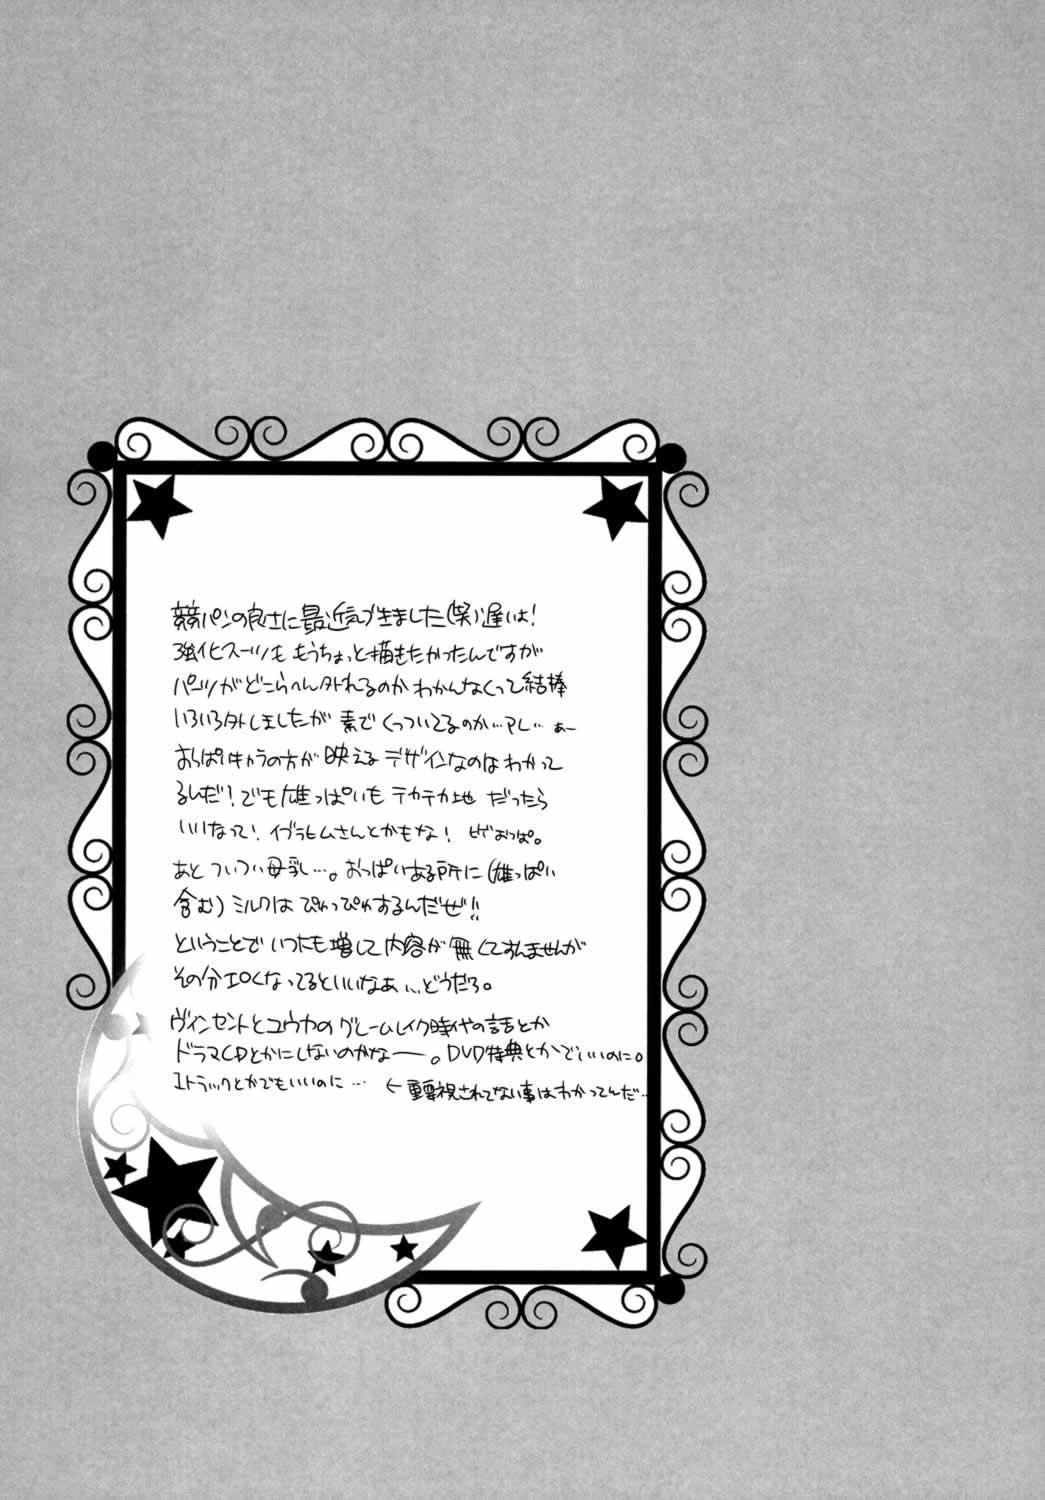 競パンの良さに最近気づきました(笑)遅いよ!
強化スーツも もうちょっと描きたかったんですが
パンツがどこらへん外れるのかわかんなくって結構
いろいろ外しましたが 素でくっついてるのか…アレ… ぁー
おっぱいキャラの方が映えるデザインなのはわかって
るんだ!でも雄っぱいもテカテカ地 だったら
いいなって!イブラヒムさんとかもな! ビバおっぱ。
あと ついつい母乳…。おっぱいある所に(雄っぱい
含む)ミルクは ぴゅっぴゅするんだぜ!!
ということで いつにも増して内容が無くてすんませんが
その分エロくなってるといいなぁ…どうだろ。
ヴィンセントとユウカのグレームレイク時代の話とか
ドラマCDとかにしないのかなー。DVD特典とかでいいのに。
1トラックとかでもいいのに… ←重要視されてない事はわかってんだ…